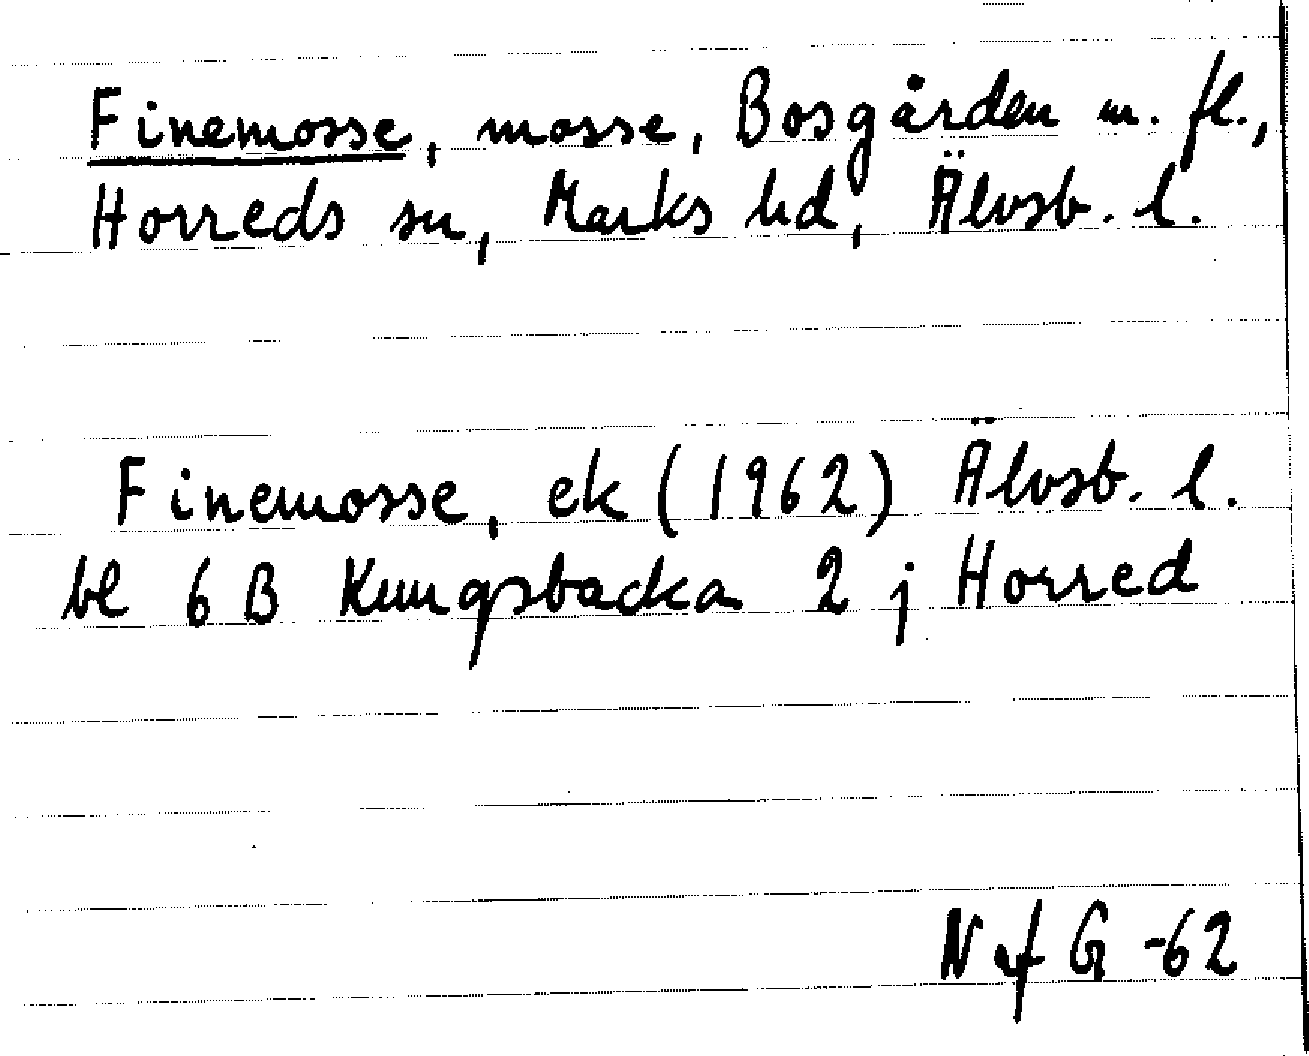 Finemosse, mosse, Bosgården m. fl.,
Horreds sn, Marks hd, Älvsb. l.
Finemosse, ek (1962) Älvsb. l.
bl 6 B Kungsbacka 2 j Horred
N af G -62